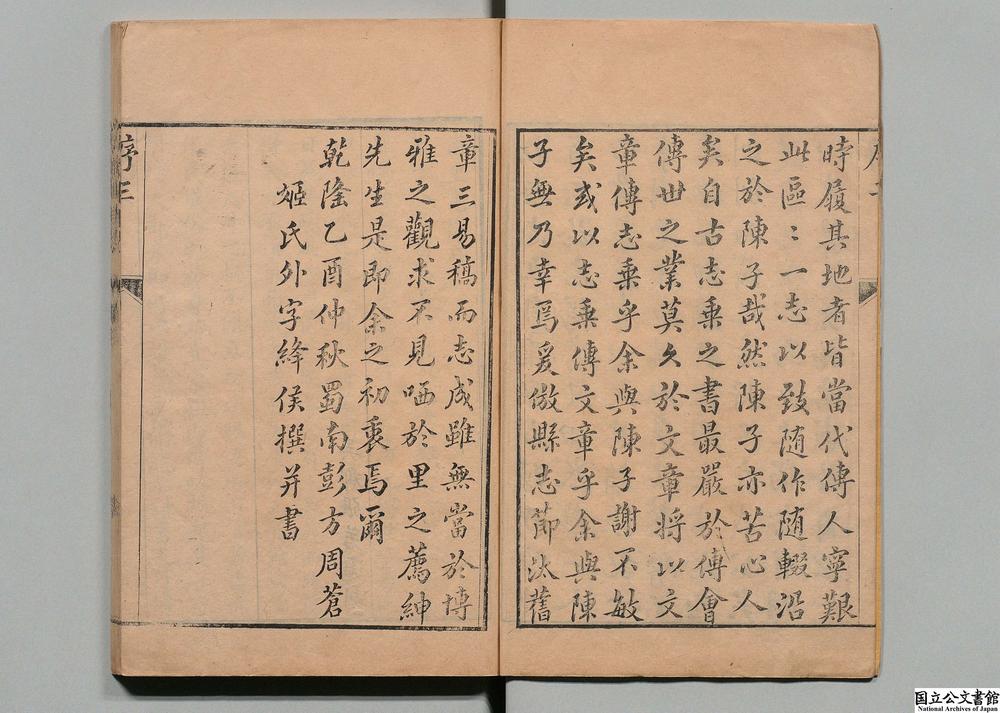 時履其地者皆當代傳人寧艱
此區〻一志以致随作随輟沿
之於陳子哉然陳子亦苦心人
矣自古志乗之書最嚴於傅會
傳世之業莫久於文章将以文
章傳志乗乎余與陳子謝不敏
矣或以志乗傳文章乎余與陳
子無乃幸焉爰倣縣志節汰舊
章三易稿而志成雖無當於博
雅之觀求不見哂於里之薦紳
先生是即余之初衷焉爾
乾隆乙酉仲秋蜀南彭方周蒼
姬氏外字绛侯撰并書
序三
国立公文書館
National Archives of Japan